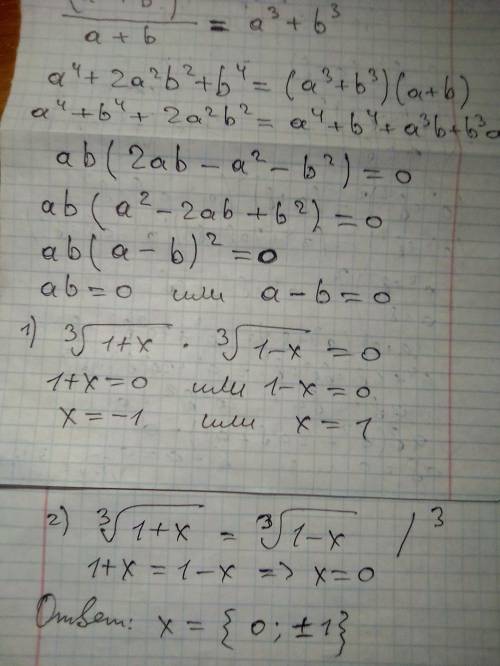 a + b = a³ + b³
a⁴ + 2a²b² + b⁴ = (a³+b³)(a+b)
a⁴ + b⁴ + 2a²b² = a⁴ + b⁴ + a³b + b³a
ab(2ab − a² − b²) = 0
ab(a² − 2ab + b²) = 0
ab(a − b)² = 0
ab = 0 или a − b = 0
1) ∛(1+x) · ∛(1−x) = 0
1+x = 0 или 1−x = 0
x = −1 или x = 1
2) ∛(1+x) = ∛(1−x) /³
1+x = 1−x => x = 0
Ответ: x = {0; ±1}